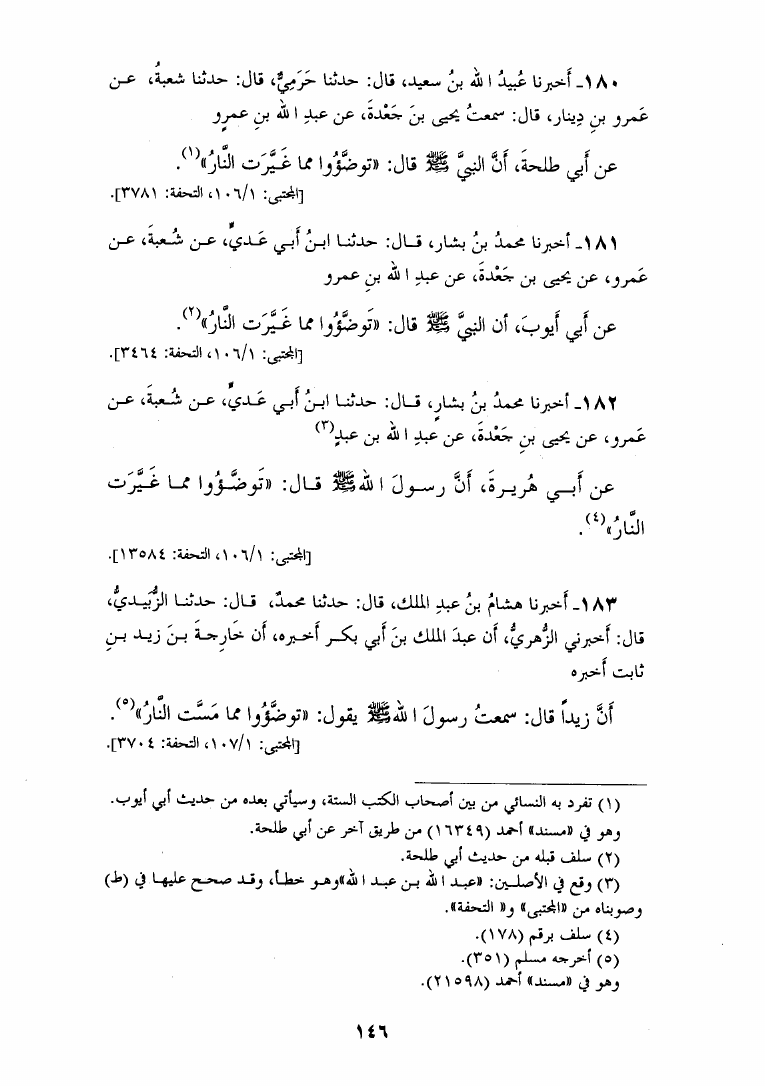 ١٨٠ـ أخبرنا عُبيدُ الله بنُ سعيد، قال: حدثنا حَرَمِيٌّ، قال: حدثنا شعبةُ، عـن
عَمرو بنِ دِينار، قال: سمعتُ يحيى بنَ جَعْدةَ، عن عبدِ الله بنِ عمرٍو
عن أَبي طلحةَ، أنَّ النبيَّ ﷺ قال: «توضَّؤُوا مما غَـيَّرَت النَّارُ»(١).
[المجتبى: ١٠٦/١، التحفة: ٣٧٨١].
١٨١ـ أخبرنا محمدُ بنُ بشار، قـال: حدثنـا ابـنُ أَبـي عَـديٍّ، عـن شُـعبةَ، عـن
عَمرو، عن يحيى بن جَعْدةَ، عن عبدِ الله بنِ عمرو
عن أَبي أيوبَ، أن النبيَّ ﷺ قال: «تَوضَّؤُوا مما غَـيَّرَت النَّارُ»(٢).
[المجتبى: ١٠٦/١، التحفة: ٣٤٦٤].
١٨٢ـ أخبرنا محمدُ بنُ بشارٍ، قـال: حدثنـا ابـنُ أَبـي عَـديٍّ، عـن شُـعبةَ، عـن
عَمرو، عن يحيى بنِ جَعْدةَ، عن عبدِ الله بن عبدٍ(٣)
عن أَبــي هُريـرةَ، أنَّ رسـولَ الله ﷺ قـال: «تَوضَّـؤُوا ممـا غَـيَّرَت
النَّارُ»(٤).
[المجتبى: ١٠٦/١، التحفة: ١٣٥٨٤].
١٨٣ـ أخبرنا هشامُ بنُ عبدِ الملك، قال: حدثنا محمدٌ، قـال: حدثنـا الزُّبَيـديُّ،
قال: أخبرني الزُّهريُّ، أن عبدَ الملك بنَ أَبي بكـر أخـبره، أن خَارِجـةَ بـنَ زيـد بـنِ
ثابت أخبره
أنَّ زيداً قال: سمعتُ رسولَ الله ﷺ يقول: «توضَّؤُوا مما مَسَّت النَّارُ»(٥).
[المجتبى: ١٠٧/١، التحفة: ٣٧٠٤].
(١) تفرد به النسائي من بين أصحاب الكتب الستة، وسيأتي بعده من حديث أبي أيوب.
وهو في «مسند» أحمد (١٦٣٤٩) من طريق آخر عن أبي طلحة.
(٢) سلف قبله من حديث أبي طلحة.
(٣) وقع في الأصلـين: «عبـد الله بـن عبـد الله» وهـو خطـأ، وقـد صحـح عليهـا في (ط)
وصوبناه من «المجتبى» و« التحفة».
(٤) سلف برقم (١٧٨).
(٥) أخرجه مسلم (٣٥١).
وهو في «مسند» أحمد (٢١٥٩٨).
١٤٦